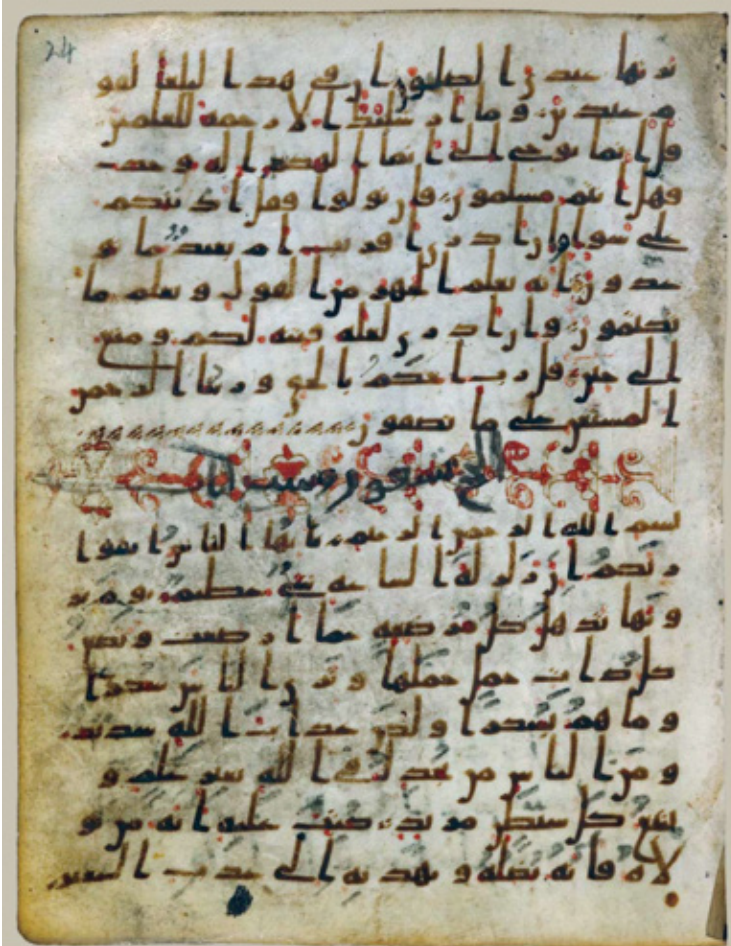 24
يرثها عبدي الصلحون ان في هدا لبلغا لقو
م عبدين وما ارسلنك الا رحمة للعلمين
قل انما يوحى الى انما الهكم اله وحد
فهل انتم مسلمون فان تولوا فقل اذنتكم
على سوا وان ادري اقريب ام بعيد ما تو
عدون انه يعلم الجهر من القول ويعلم ما
تكتمون وان ادري لعله فتنة لكم ومتع
الى حين قل رب احكم بالحق وربنا الرحمن
المستعن على ما تصفون
الحج سبعون وست ايات
بسم الله الرحمن الرحيم يايها الناس اتقوا
ربكم ان زلزلة الساعة شى عظيم يوم تر
ونها تذهل كل مرضعة عما ارضعت وتضع
كل ذات حمل حملها وترى الناس سكرى
وما هم بسكرى ولكن عذاب الله شديد
ومن الناس من يجدل في الله بغير علم و
يتبع كل شيطن مريد كتب عليه انه من تو
لاه فانه يضله ويهديه الى عذاب السعير